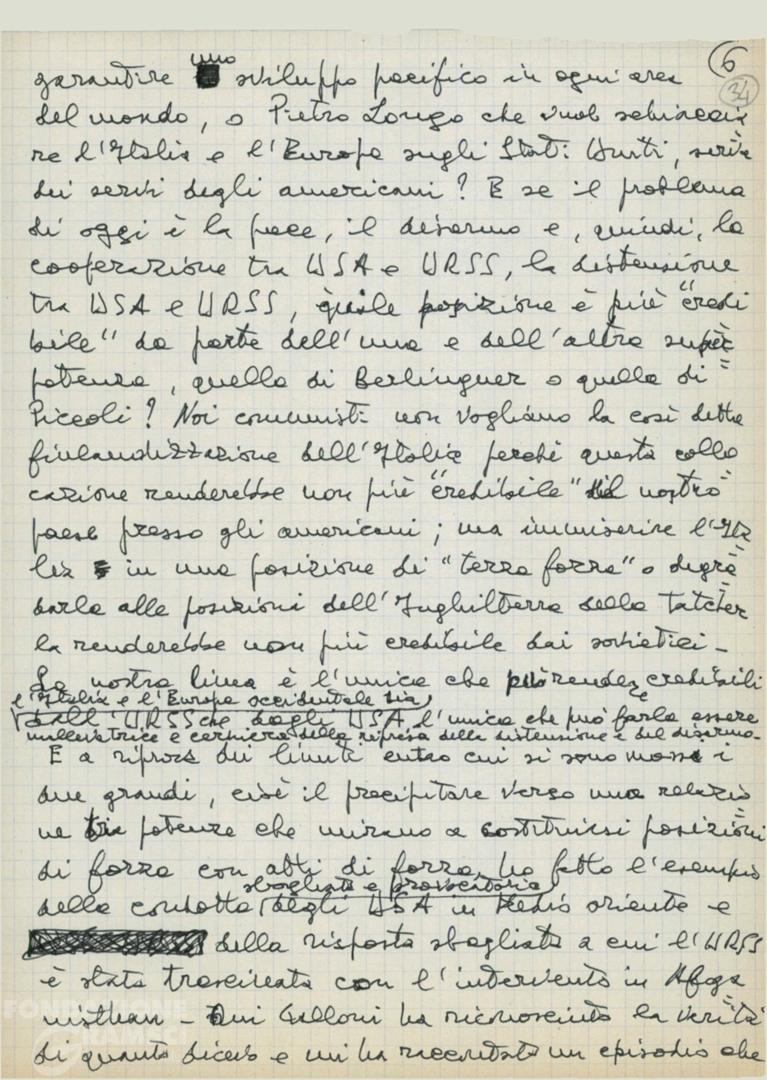 6
34
garantire uno sviluppo pacifico in ogni area
del mondo, o Pietro Longo che vuole schiaccia
re l'Italia e l'Europa sugli Stati Uniti,
dei servi degli americani? E se il problema
di oggi è la pace, il disarmo e, quindi, la
cooperazione tra USA e URSS, la distensione
tra USA e URSS, quale posizione è più "credi
bile" da parte dell'una e dell'altra super
potenza, quella di Berlinguer o quella di
Piccoli? Noi comunisti non vogliamo la così detta
finlandizzazione dell'Italia perché questa collo
cazione renderebbe non più "credibile" il nostro
paese presso gli americani; ma immiserire l'Ita
lia in una posizione di "terza forza" o degra
darla alle posizioni dell'Inghilterra della Tatcher
la renderebbe non più credibile dai sovietici -
La nostra linea è l'unica che può rendere credibili
l'Italia e l'Europa occidentale sia
dall'URSS che dagli USA, l'unica che può farla essere
sollecitatrice e cerniera della ripresa della distensione e del disarmo.
E a riprova dei limiti entro cui si sono mossi i
due grandi, cioè il precipitare verso una relazio
ne tra potenze che mirano a costituirsi posizioni
di forza con atti di forza, ho fatto l'esempio
sbagliata e provocatoria
della condotta degli USA in Medio oriente e
della risposta sbagliata a cui l'URSS
è stata trascinata con l'intervento in Afga
nisthan - Qui Galloni ha riconosciuto la verità
di quanto dicevo e mi ha raccontato un episodio che
FONDAZIONE
GRAMSCI